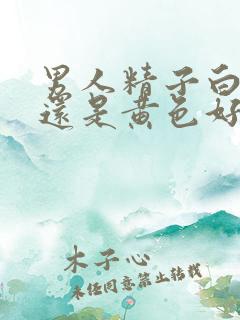 男人精子白
還是黄色好
木子心
未经同意禁止转载